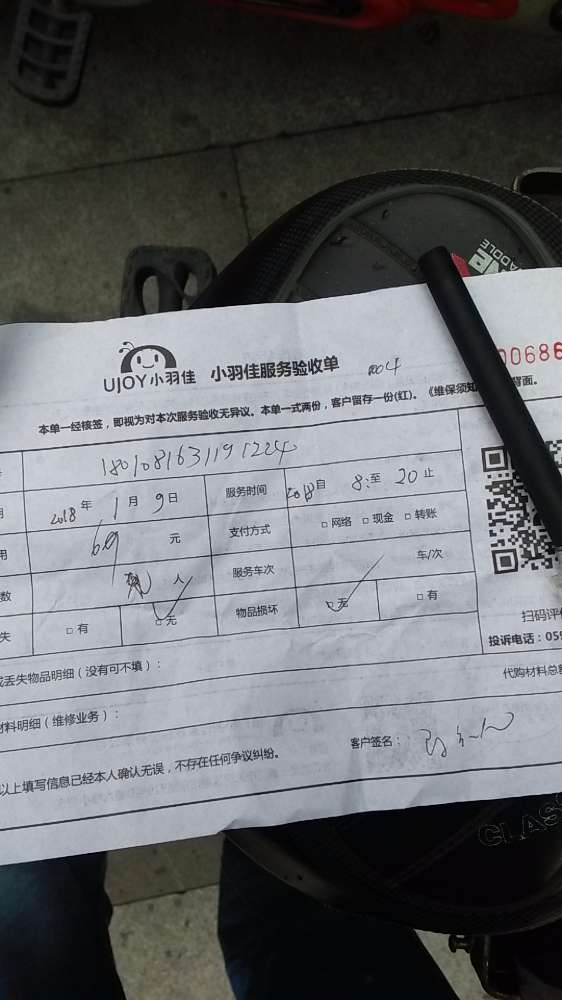 NE
ADDLE
UJOY小羽佳 小羽佳服务验收单 004
00686
本单一经核签，即视为对本次服务验收无异议。本单一式两份，客户留存一份(红)。《维保须知 背面。
1801081631191224
2018年1月9日 服务时间 2018自8:至20止
用 69 元 支付方式 □网络 □现金 □转账
数 人 服务车次 车/次
失 □有 □无 物品损坏 □无 □有
扫码评价
投诉电话：059
或丢失物品明细（没有可不填）： 代购材料总额
材料明细（维修业务）：
以上填写信息已经本人确认无误，不存在任何争议纠纷。 客户签名：
CLASS